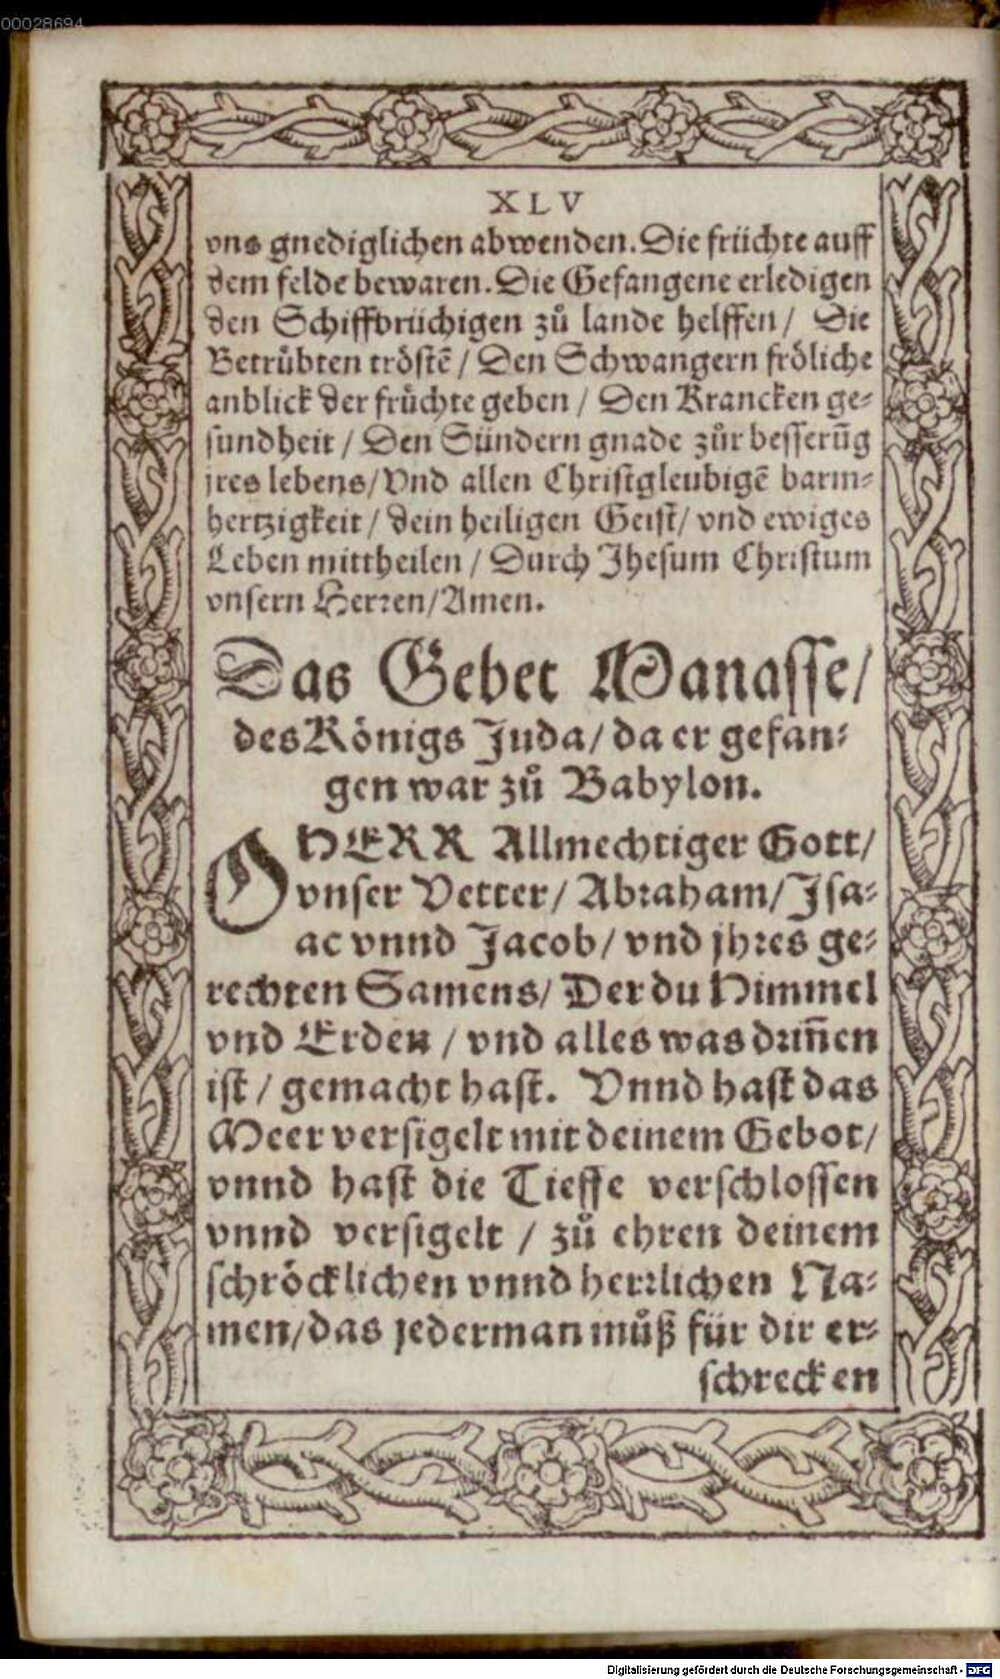 00028694
XLV
vns gnediglichen abwenden. Die früchte auff
dem felde bewaren. Die Gefangene erledigen
den Schiffbrüchigen zů lande helffen / Die
Betrübten tröstē / Den Schwangern fröliche
anblick der früchte geben / Den Krancken ge-
sundheit / Den Sündern gnade zůr besserūg
jres lebens / Vnd allen Christgleubigē barm-
hertzigkeit / dein heiligen Geist / vnd ewiges
Leben mittheilen / Durch Jhesum Christum
vnsern Herren / Amen.
Das Gebet Manasse /
des Königs Juda / da er gefan-
gen war zů Babylon.
O HERR Allmechtiger Gott /
vnser Vetter / Abraham / Isa-
ac vnnd Jacob / vnd jhres ge-
rechten Samens / Der du Himmel
vnd Erden / vnd alles was driñen
ist / gemacht hast. Vnnd hast das
Meer versigelt mit deinem Gebot /
vnnd hast die Tieffe verschlossen
vnnd versigelt / zů ehren deinem
schröcklichen vnnd herrlichen Na-
men / das jederman můß für dir er-
schrecken
Digitalisierung gefördert durch die Deutsche Forschungsgemeinschaft - DFG